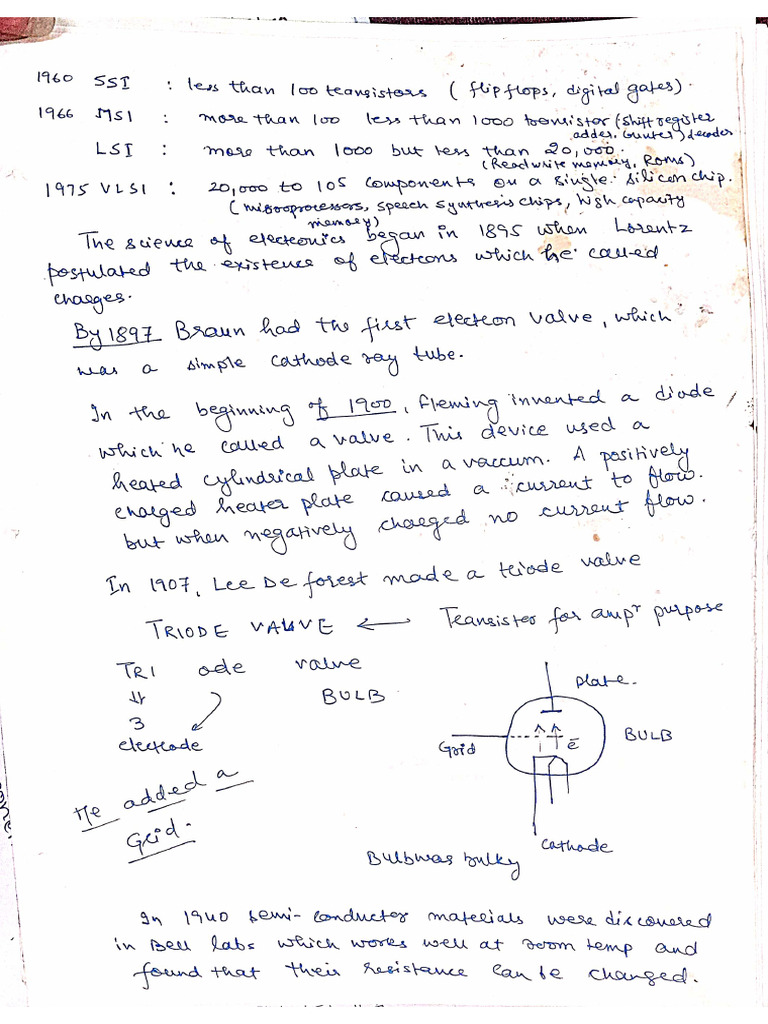 1960 SSI : less than 100 transistors ( flipflops, digital gates).
1966 MSI : more than 100 less than 1000 transistor (shift register
adder, counter) decoder
LSI : more than 1000 but less than 20,000.
(Read write memory, ROMs)
1975 VLSI : 20,000 to 105 components on a single silicon chip.
( microprocessors, speech synthesis chips, high capacity
memory)
The science of electronics began in 1895 when Lorentz
postulated the existence of electrons which he called
charges.
By 1897 Braun had the first electron valve, which
was a simple cathode ray tube.
In the beginning of 1900, Fleming invented a diode
which he called a valve. This device used a
heated cylindrical plate in a vaccum. A positively
charged heater plate caused a current to flow.
but when negatively charged no current flow.
In 1907, Lee De forest made a triode valve
TRIODE VALVE ← Transistor for ampr purpose
TRI ode valve
⇓ BULB
3
electrode
Plate.
Grid
e̅
BULB
Cathode
He added a
Grid.
Bulb was bulky
In 1940 semi-conductor materials were discovered
in Bell labs which works well at room temp and
found that their resistance can be changed.